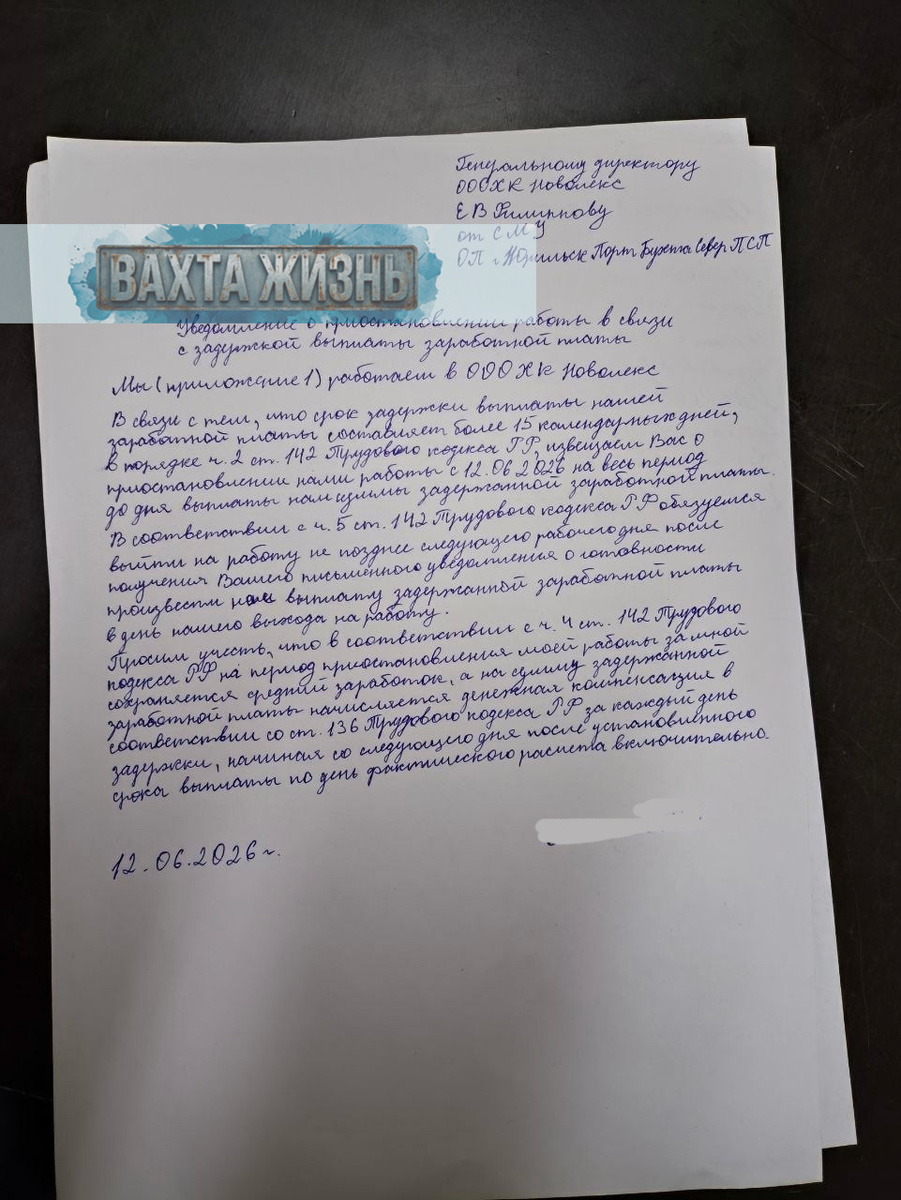 Генеральному директору
ОООХК Новолекс
Е В Филиппову
от СМУ
ОП г Норильск Порт Бухта Север ПСП
ВАХТА ЖИЗНЬ
Уведомление о приостановлении работы в связи
с задержкой выплаты заработной платы
Мы (приложение 1) работаем в ООО ХК Новолекс
В связи с тем, что срок задержки выплаты нашей
заработной платы составляет более 15 календарных дней,
в порядке ч. 2 ст. 142 Трудового кодекса РФ, извещаем Вас о
приостановлении нами работы с 12.06.2026 на весь период
до дня выплаты нам суммы задержанной заработной платы.
В соответствии с ч. 5 ст. 142 Трудового кодекса РФ обязуемся
выйти на работу не позднее следующего рабочего дня после
получения Вашего письменного уведомления о готовности
произвести нам выплату задержанной заработной платы
в день нашего выхода на работу.
Просим учесть, что в соответствии с ч. 4 ст. 142 Трудового
кодекса РФ на период приостановления моей работы за мной
сохраняется средний заработок, а на сумму задержанной
заработной платы начисляется денежная компенсация в
соответствии со ст. 136 Трудового кодекса РФ за каждый день
задержки, начиная со следующего дня после установленного
срока выплаты по день фактического расчета включительно.
12.06.2026 г.